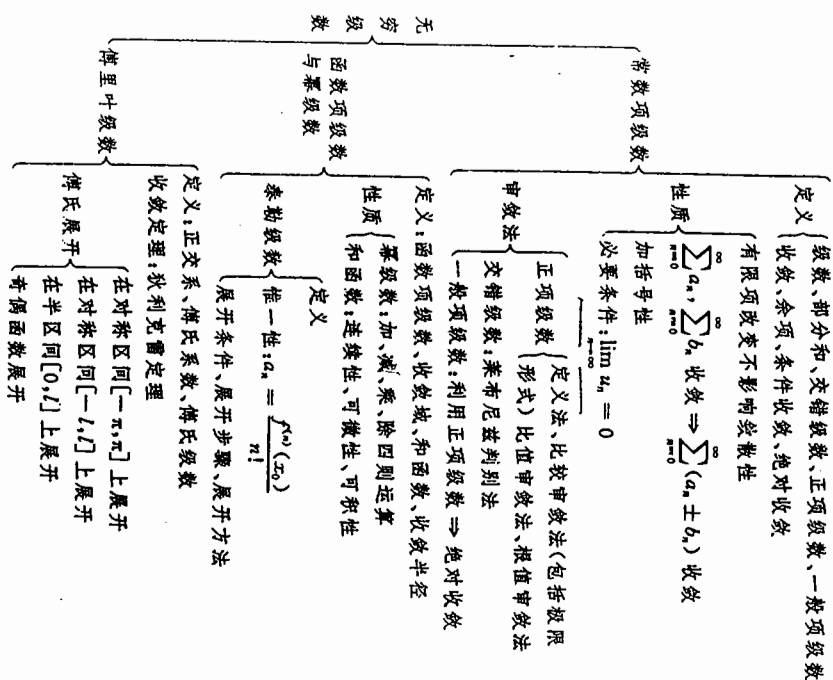 无穷级数
常数项级数
定义
级数、部分和、交错级数、正项级数、一般项级数
收敛、余项、条件收敛、绝对收敛
性质
有限项改变不影响敛散性
∑_{n=0}^{∞} a_n, ∑_{n=0}^{∞} b_n 收敛 ⇒ ∑_{n=0}^{∞} (a_n ± b_n) 收敛
加括号性
必要条件:lim_{n→∞} u_n = 0
审敛法
正项级数
定义法、比较审敛法(包括极限
形式)比值审敛法、根值审敛法
交错级数:莱布尼兹判别法
一般项级数:利用正项级数 ⇒ 绝对收敛
函数项级数
与幂级数
定义:函数项级数、收敛域、和函数、收敛半径
性质
幂级数:加、减、乘、除四则运算
和函数:连续性、可微性、可积性
泰勒级数
定义
惟一性:a_n = f^{(n)}(x_0) / n!
展开条件、展开步骤、展开方法
傅里叶级数
定义:正交系、傅氏系数、傅氏级数
收敛定理:狄利克雷定理
傅氏展开
在对称区间[-π,π]上展开
在对称区间[-l,l]上展开
在半区间[0,l]上展开
奇偶函数展开